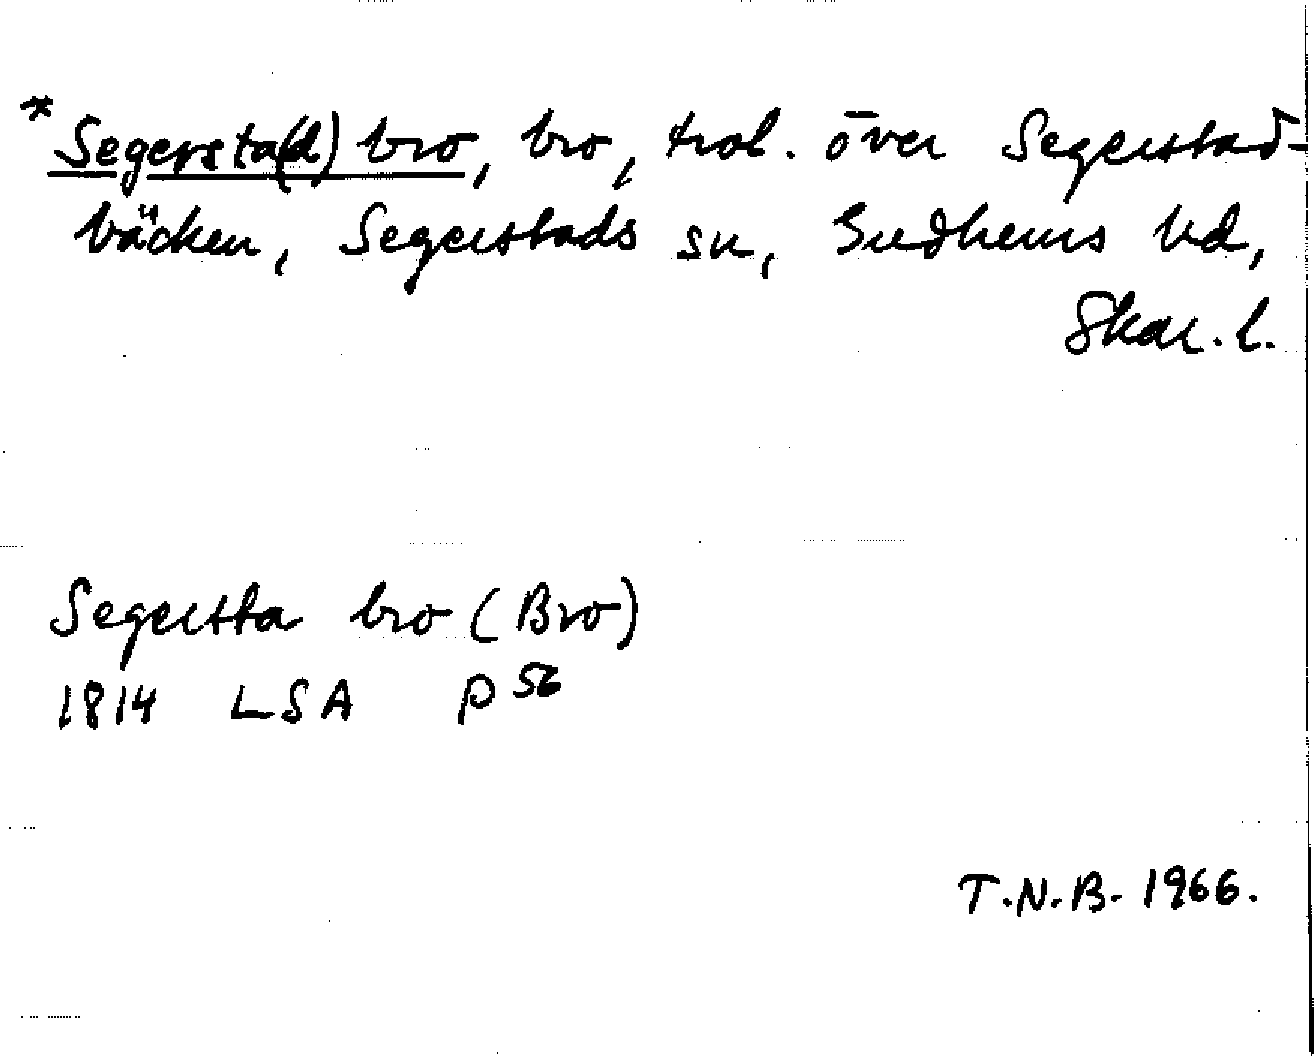 *Segersta(d) bro, bro, trol. över Segerstad-
bäcken, Segerstads sn, Gudhems hd,
Skar. l.
Segersta bro (Bro)
1814 LSA P 56
T.N.B. 1966.